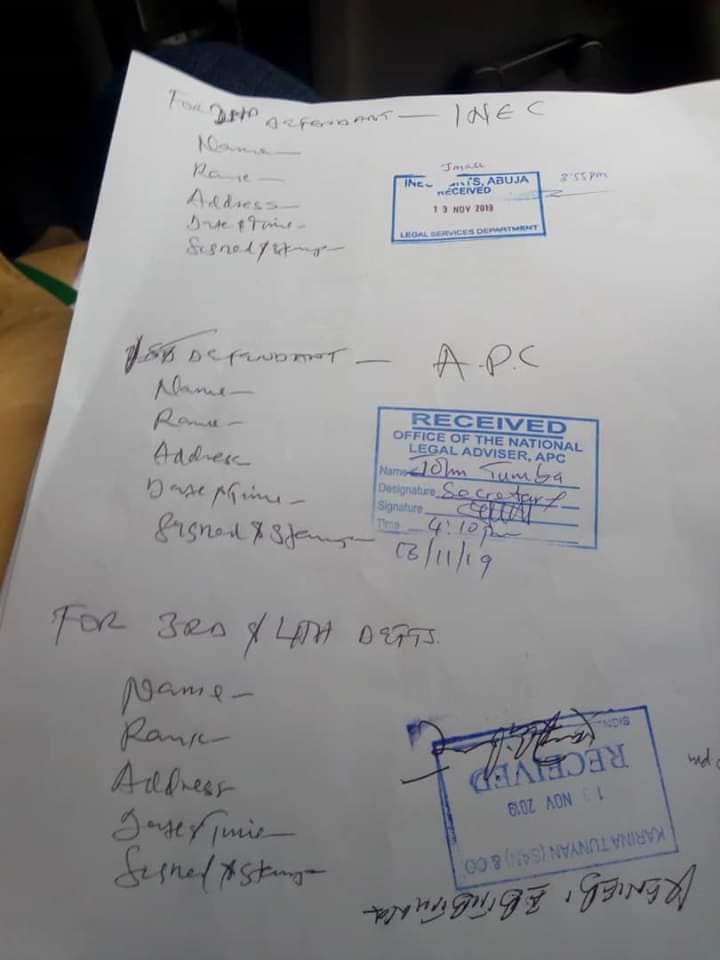 FOR 2ND DEFENDANT — INEC
Name —
Rank —
Address —
Date & Time —
Signed & Stamp —
3:55pm
INEC S, ABUJA
RECEIVED
13 NOV 2019
LEGAL SERVICES DEPARTMENT
1ST DEFENDANT — A.P.C
Name —
Rank —
Address
Date & Time —
Signed & Stamp —
RECEIVED
OFFICE OF THE NATIONAL
LEGAL ADVISER, APC
Name John Tumba
Designature Secretary
Signature
Time 4:10pm
13/11/19
FOR 3RD & 4TH DEFTS.
Name —
Rank —
Address
Date & Time —
Signed & Stamp —
SIGN:
RECEIVED
NOV 2019
KARINA TUNYAN (SAN) & CO
pm